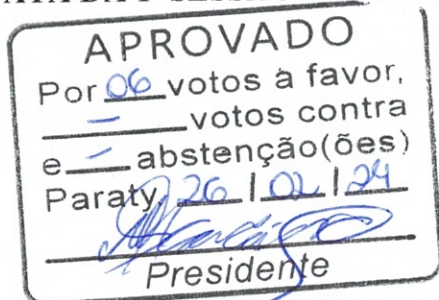 APROVADO
Por 06 votos a favor,
— votos contra
e — abstenção(ões)
Paraty, 26 / 02 / 24
Presidente